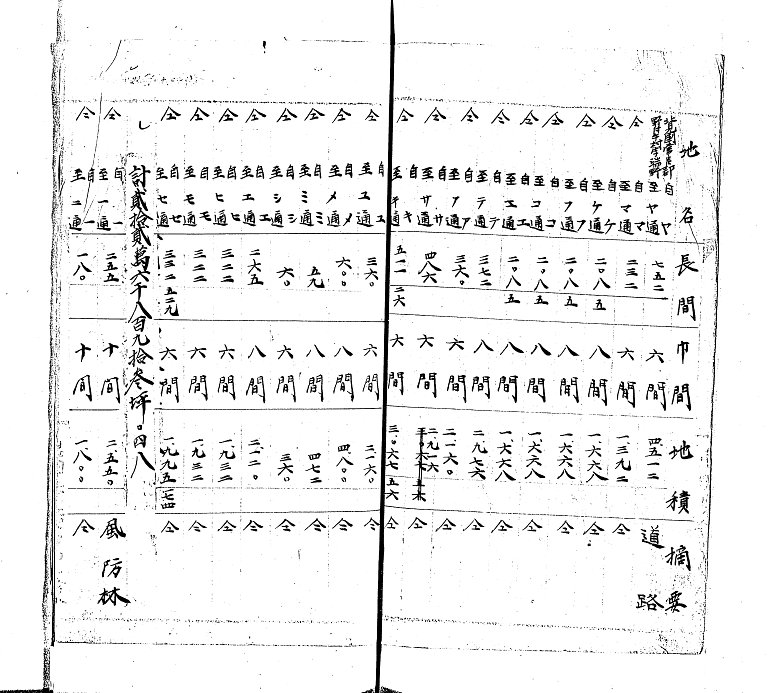 地名 長間 巾間 地積 摘要
自ヤ至ヤ通 七五二 六間 四五一二 道路
仝 自マ至マ通 二三二 六間 一三九二 仝
仝 自ケ至ケ通 二〇八五 八間 一六六八 仝
仝 自フ至フ通 二〇八五 八間 一六六八 仝
仝 自コ至コ通 二〇八五 八間 一六六八 仝
仝 自エ至エ通 二〇八五 八間 一六六八 仝
仝 自テ至テ通 三七二 八間 二九七六 仝
仝 自ア至ア通 三六〇 六間 二一六〇 仝
仝 自サ至サ通 四八六 六間 二九一六 仝
仝 自キ至キ通 五一一二六 六間 三〇六七五六 仝
仝 自ユ至ユ通 三六〇 六間 二一六〇 仝
仝 自メ至メ通 六〇〇 八間 四八〇〇 仝
仝 自ミ至ミ通 五九 八間 四七二 仝
仝 自シ至シ通 六〇 六間 三六〇 仝
仝 自エ至エ通 二六五 八間 二一二〇 仝
仝 自ヒ至ヒ通 三二二 六間 一九三二 仝
仝 自モ至モ通 三二二 六間 一九三二 仝
仝 自セ至セ通 三三二五二九 六間 一九九五一七四 仝
計貳拾貳萬六千八百九拾叁坪〇四八
仝 自一至一通 二五五 十間 二五五〇 風防林
仝 自一至二通 一八〇 十間 一八〇〇 仝